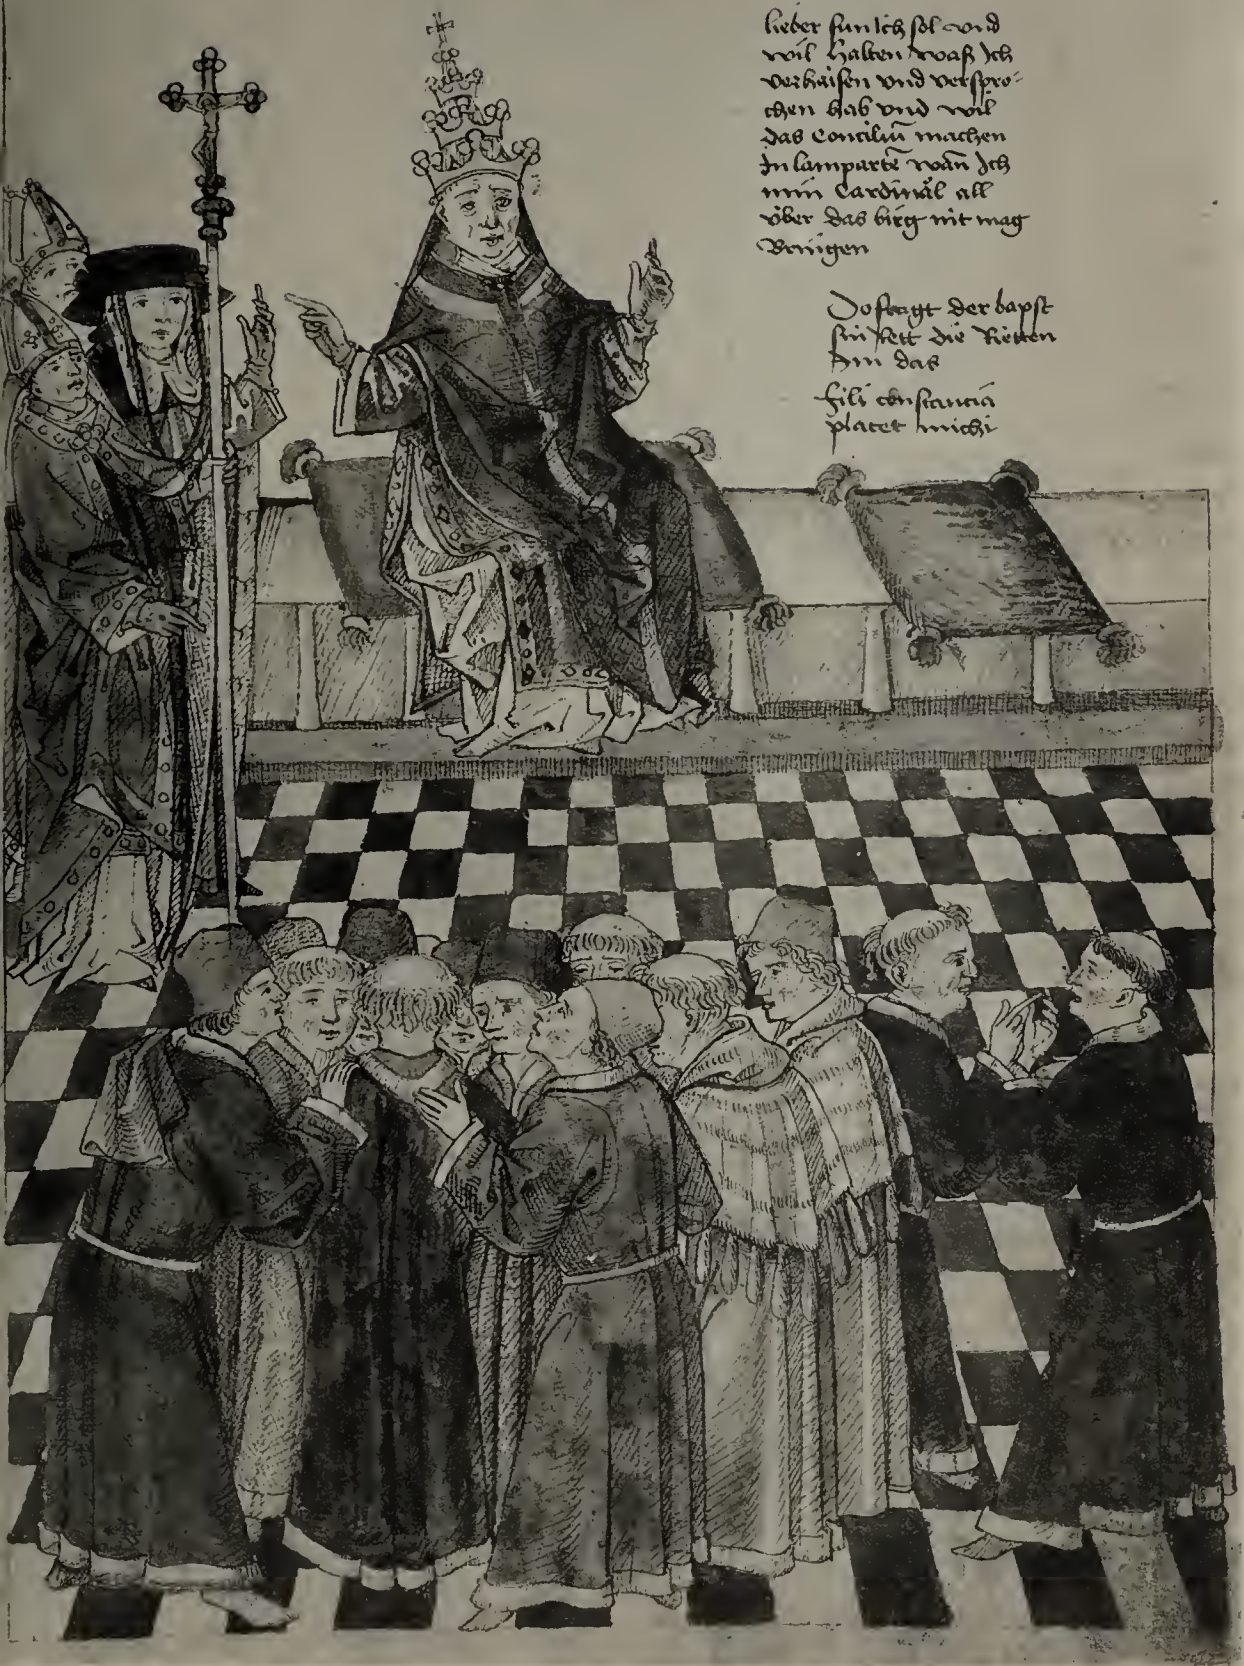 lieber sun Ich sol vnd
wil halten waß Ich
verhaisen vnd verspro-
chen hab vnd wil
das Conciliū machen
In lampartē wān Ich
min Cardinäl all
über das birg nit mag
Bringen
Do fragt der bapst
sin Rett die Rietten
Im das
fili constancia
placet michi